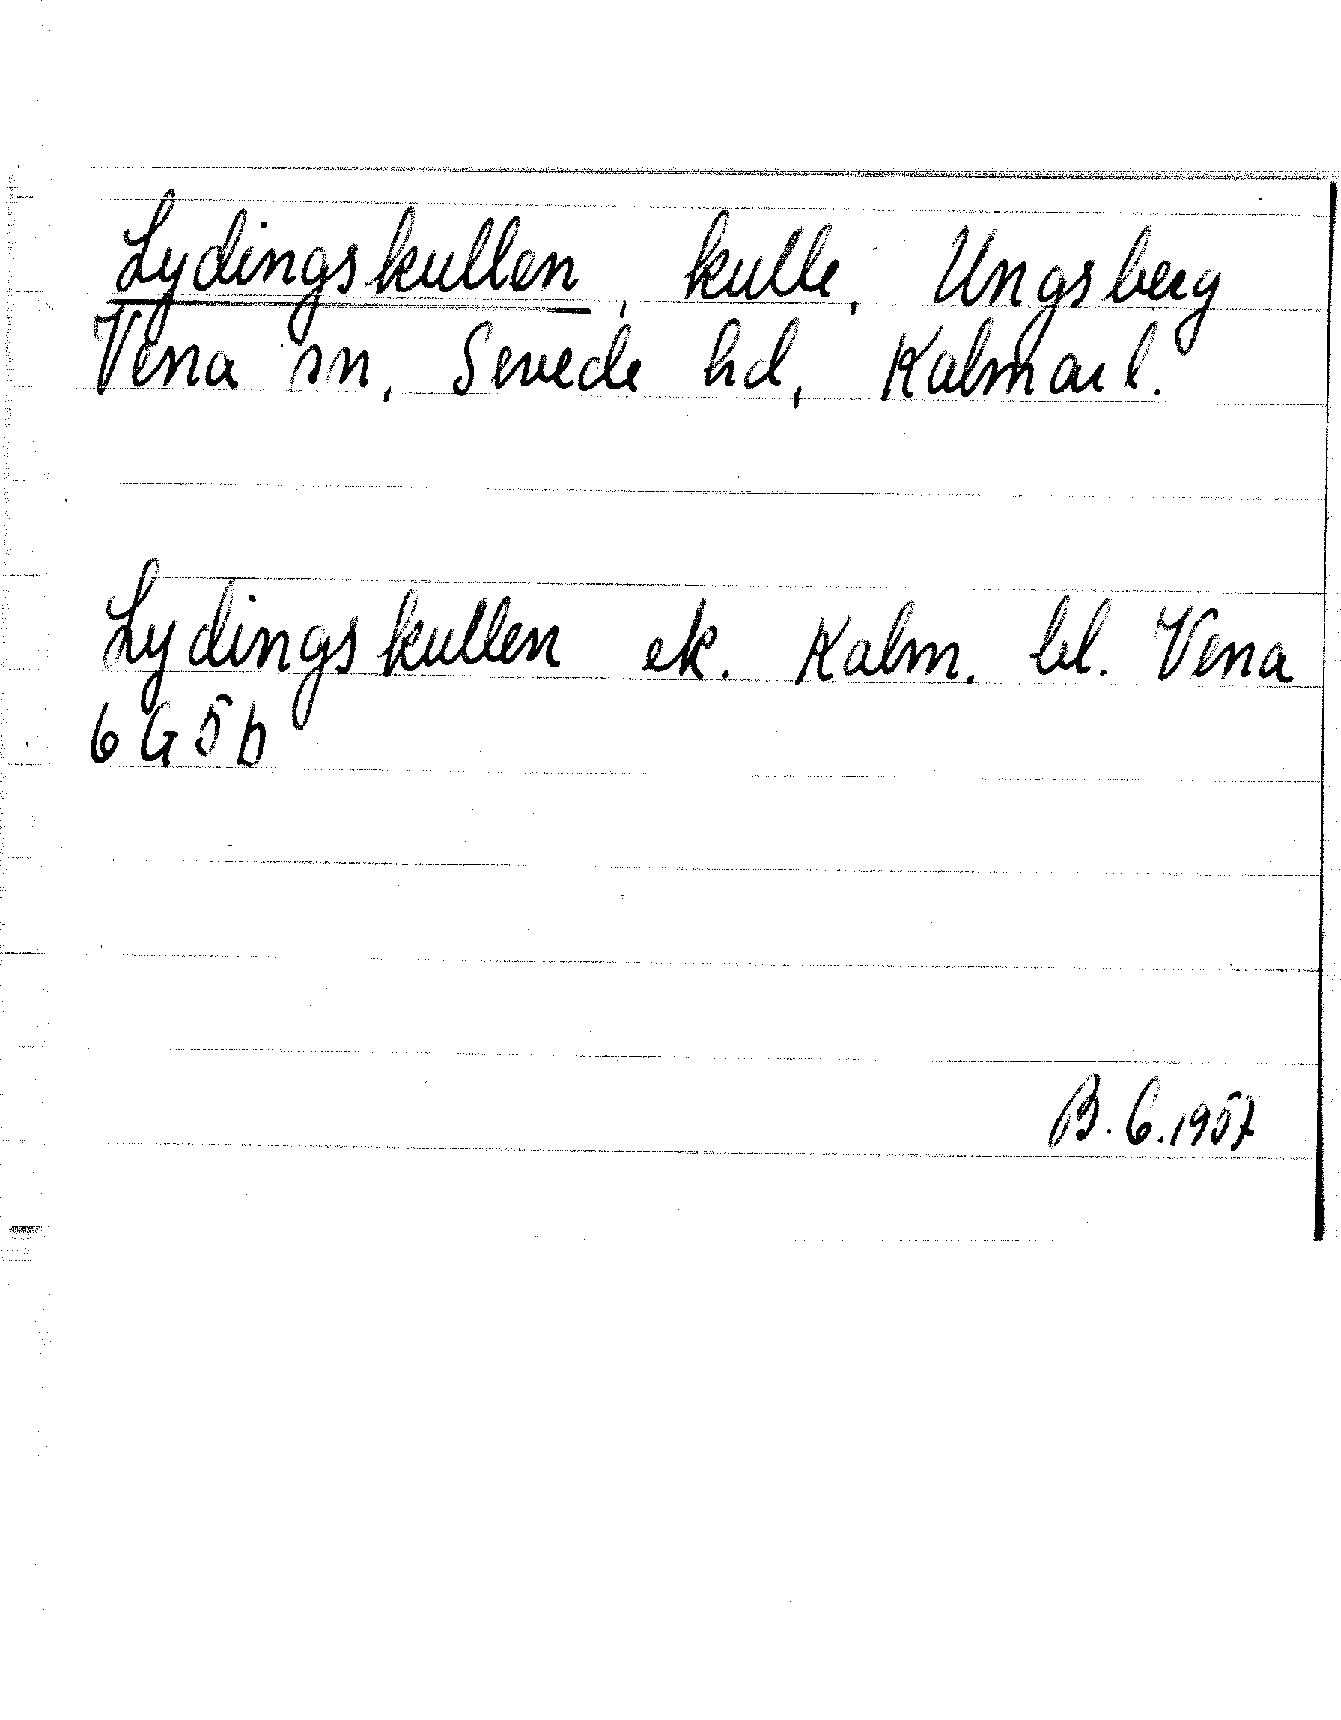 Lydingskullen, kulle, Ungsberg
Vena sn, Sevede hd, Kalmar l.
Lydingskullen ek. Kalm. bl. Vena
6G5b
B.G.1957